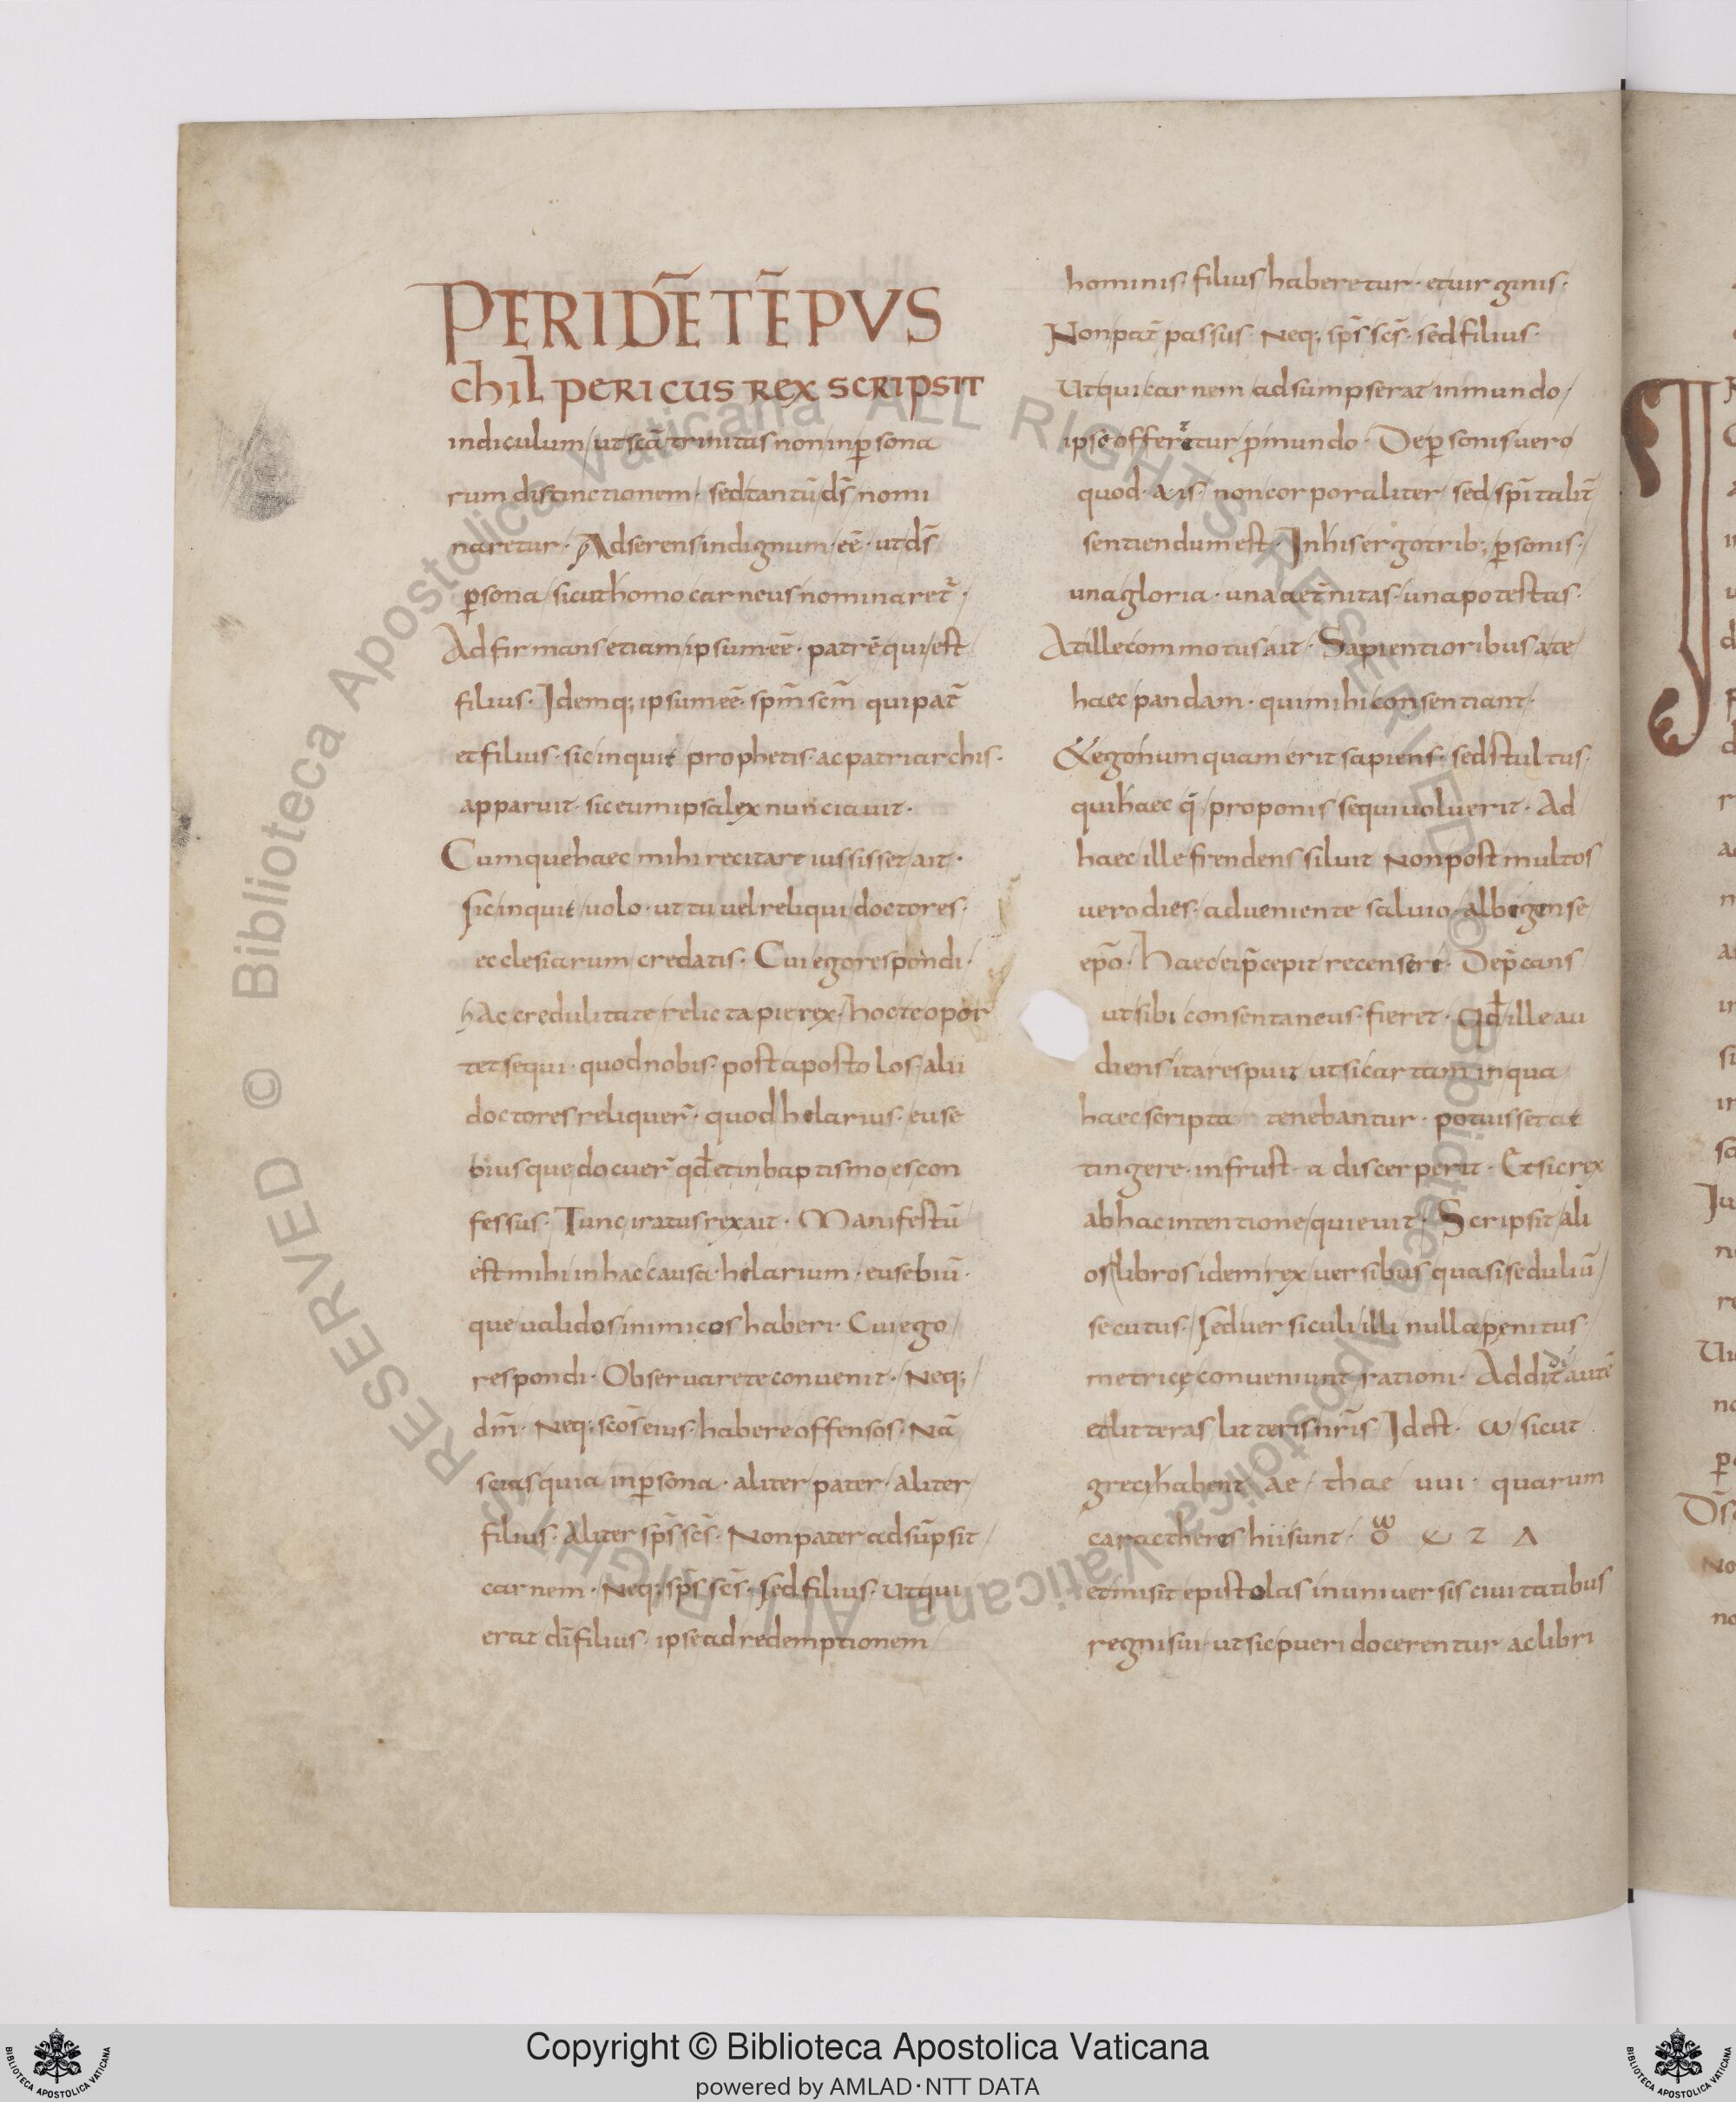 PERIDE̅TE̅PVS
chilpericus rex scripsit
indiculum ut scā trinitas non in ꝑsona
rum distinctionem · sed tantū ds̄ nomi
naretur · Adserens indignum · eē · ut ds̄
ꝑsona sicut homo carneus nominaret̄ ·
Adfirmans etiam ipsum eē · patrē qui est
filius · Idemq; ipsum eē · spm̄ scm̄ qui pat̄
et filius · sic inquit prophetis · ac patriarchis ·
apparuit · sic eum ipsa lex nunciauit ·
Cumque haec mihi recitare iussisset ait ·
sic inquit uolo · ut tu uel reliqui doctores ·
ecclesiarum credatis · Cui ego respondi ·
hAc credulitate relicta pie rex · hoc te opor
tet sequi · quod nobis · post apostolos · alii
doctores reliquer̄ · quod helarius · euse
biusque docuer̄ qd̄ et in baptismo es con
fessus · Tunc iratus rex ait · Manifestū
est mihi in hac causa · helarium · eusebiū ·
que ualidos inimicos haberi · Cui ego
respondi · Obseruare te conuenit · Neq;
dm̄ · Neq; scos̄ eius · habere offensos · Nā
scias quia in ꝑsona · aliter pater · aliter
filius · Aliter sps̄ scs̄ · Non pater adsūpsit
carnem · Neq; sps̄ scs̄ · sed filius · Ut qui
erat dī filius · ipse ad redemptionem
hominis · filius haberetur · et uirginis ·
Non pat̄ passus · Neq; sps̄ scs̄ · sed filius ·
Ut qui carnem adsumpserat in mundo
ipse offerretur ꝓ mundo · De ꝑsonis uero
quod · ais · non corporaliter sed spītalit̄
sentiendum est · In his ergo trib; ꝑsonis ·
una gloria · una aet̄nitas · una potestas ·
At ille commotus ait · Sapientioribus a te
haec pandam · qui mihi consentiant ·
& ego numquam erit sapiens · sed stultus ·
qui haec q̄ proponis sequi uoluerit · Ad
haec ille frendens siluit Non post multos
uero dies · adueniente saluio · albigense
epō · Haec ei p̄cepit recenseri · Dep̄cans
ut sibi consentaneus · fieret · Qd̄ ille au
diens ita respuit ut si cartam in qua
haec scripta tenebantur · potuisset at
tingere · in frust a discerperit · Et sic rex
ab hac intentione quieuit · Scripsit ali
os libros idem rex uersibus quasi seduliū
secutus · sed uersiculi illi nulla penitus
metricę conueniunt rationi · Addidit autē
et litteras litteris nr̄is Id est · ω sicut
greci habent ae · thae uui · quarum
caractheres hii sunt ·
et misit epistolas in uniuersis ciuitatibus
regni sui · ut sic pueri docerentur ac libri
Copyright © Biblioteca Apostolica Vaticana
powered by AMLAD·NTT DATA